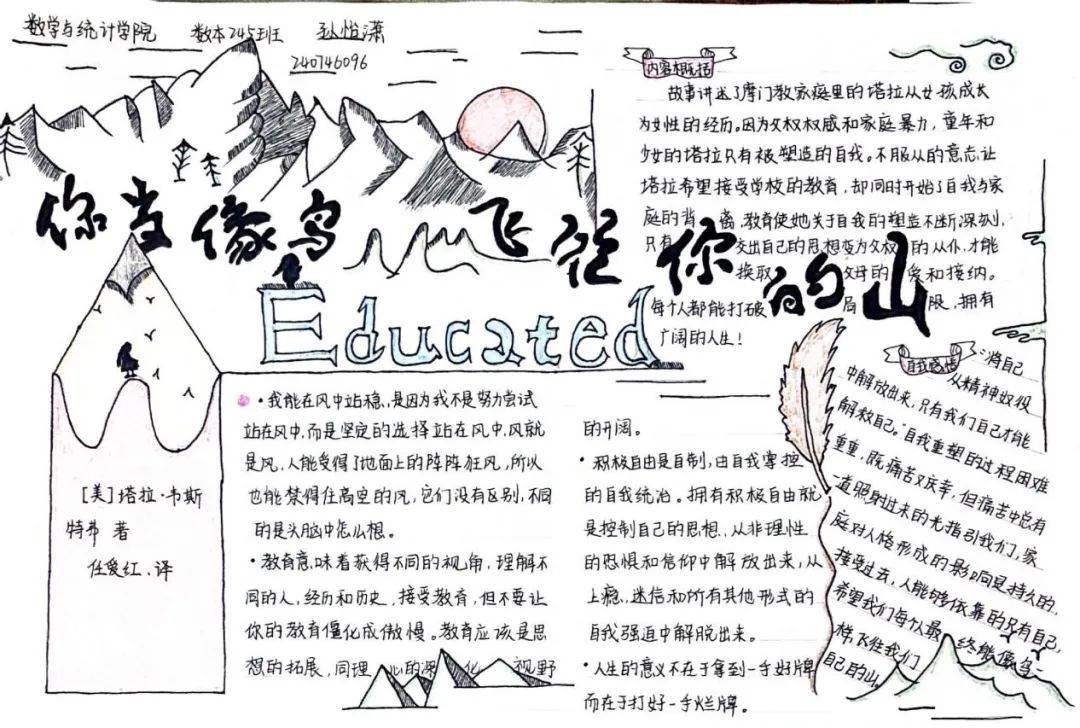 数学与统计学院 数本245班 孙怡潇
240746096
你当像鸟飞往你的山
Educated
内容概括
故事讲述了摩门教家庭里的塔拉从女孩成长
为女性的经历。因为父权权威和家庭暴力，童年和
少女的塔拉只有被塑造的自我。不服从的意志让
塔拉希望接受学校的教育，却同时开始了自我与家
庭的背离，教育使她关于自我的塑造不断深刻，
只有交出自己的思想变为父权的从仆，才能
换取父母的爱和接纳。
每个人都能打破局限，拥有
广阔的人生！
[美]塔拉·韦斯
特弗 著
任爱红、译
·我能在风中站稳，是因为我不是努力尝试
站在风中，而是坚定的选择站在风中，风就
是风，人能受得了地面上的阵阵狂风，所以
也能禁得住高空的风，它们没有区别，不同
的是头脑中怎么想。
·教育意味着获得不同的视角，理解不
同的人，经历和历史，接受教育，但不要让
你的教育僵化成傲慢。教育应该是思
想的拓展，同理心的深化，视野
的开阔。
·积极自由是自制，由自我掌控
的自我统治。拥有积极自由就
是控制自己的思想，从非理性
的恐惧和信仰中解放出来，从
上瘾、迷信和所有其他形式的
自我强迫中解脱出来。
·人生的意义不在于拿到一手好牌
而在于打好一手烂牌。
自我感悟
"将自己
从精神奴役
中解放出来，只有我们自己才能
解救自己。"自我重塑的过程困难
重重，既痛苦又庆幸，但痛苦中总有
一道照射过来的光指引我们，家
庭对人格形成的影响是持久的，
接受过去，人能够依靠的只有自己，
希望我们每个人最终能像鸟一
样，飞往我们
自己的山。